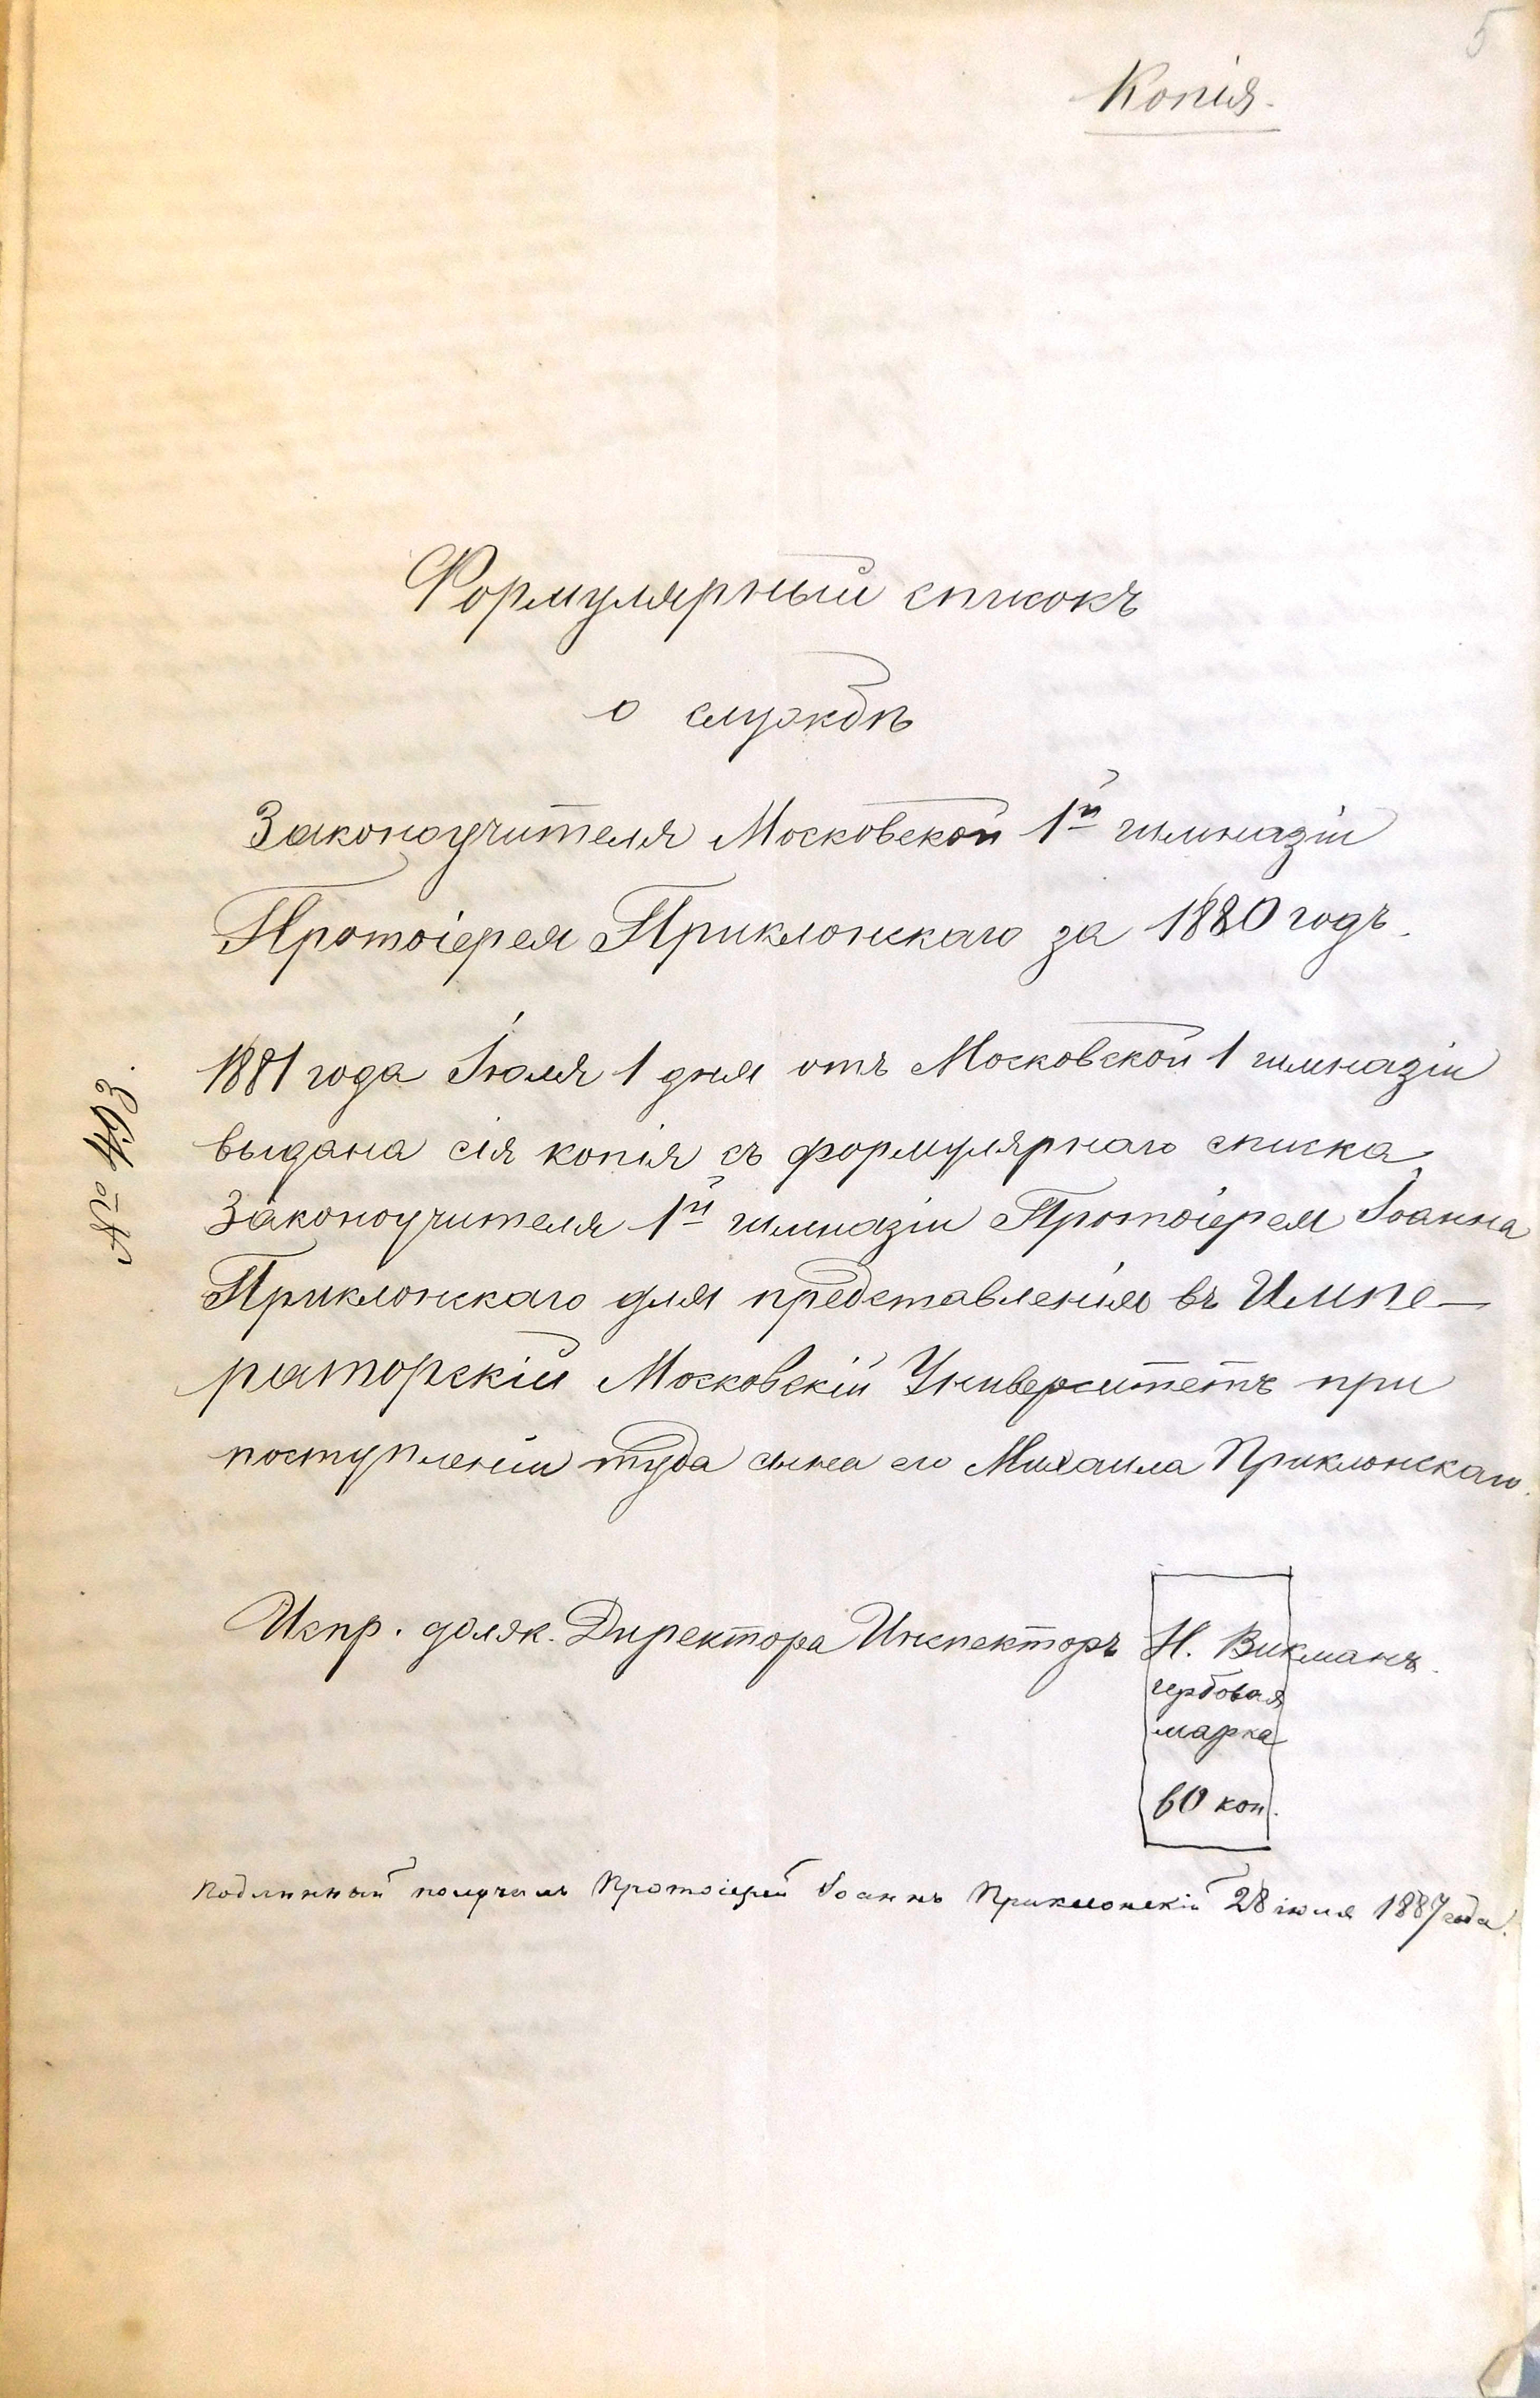 5
Копія.
Формулярный списокъ
о службѣ
Законоучителя Московской 1й гимназіи
Протоіерея Приклонскаго за 1880 годъ.
1881 года Іюля 1 дня отъ Московской 1 гимназіи
выдана сія копія съ формулярнаго списка
Законоучителя 1й гимназіи Протоіерея Іоанна
Приклонскаго для представленія въ Импе-
раторскій Московскій Университетъ при
поступленіи туда сына его Михаила Приклонскаго.
Испр. долж. Директора Инспекторъ Н. Викманъ.
гербовая
марка
60 коп.
Подлинный получилъ Протоіерей Іоаннъ Приклонскій 28 іюля 1887 года.
№